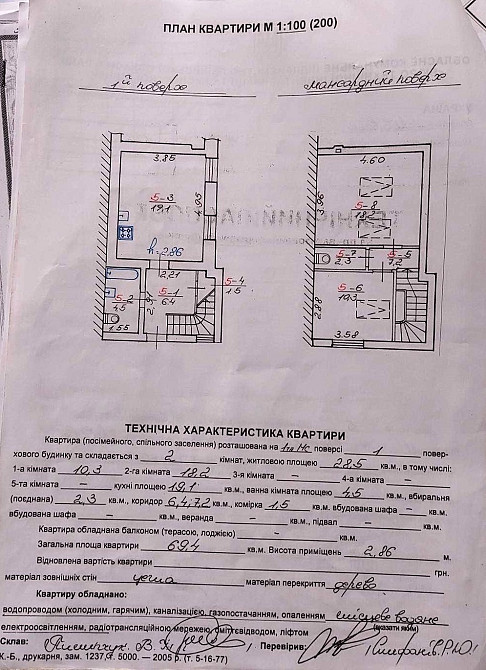 ПЛАН КВАРТИРИ М 1:100 (200)
1й поверх
мансардний поверх
3.85
4.60
5-3
19,1
4.95
3.96
5-8
18,2
h=2.86
2.21
5-4
1.5
5-7
2.3
5-5
7,2
5-2
4.5
5-1
6.4
2.91
5-6
10,3
2.88
1.55
3.58
ТЕХНІЧНА ХАРАКТЕРИСТИКА КВАРТИРИ
Квартира (посімейного, спільного заселення) розташована на 1му МС поверсі 1 повер-
хового будинку та складається з 2 кімнат, житловою площею 28.5 кв.м., в тому числі:
1-а кімната 10,3 2-га кімната 18,2 3-я кімната – 4-а кімната –
5-та кімната – кухні площею 19,1 кв.м., ванна кімната площею 4,5 кв.м., вбиральня
(поєднана) 2,3 кв.м., коридор 6,4, 7,2 кв.м., комірка 1,5 кв.м. вбудована шафа – кв.м.
вбудована шафа – кв.м., веранда – кв.м., підвал – кв.м.
Квартира обладнана балконом (терасою, лоджією) – кв.м.
Загальна площа квартири 69,4 кв.м. Висота приміщень 2,86 м.
Відновлена вартість квартири грн.
матеріал зовнішніх стін цегла матеріал перекриття дерево
Квартиру обладнано:
водопроводом (холодним, гарячим), каналізацією, газопостачанням, опаленням місцеве водяне
(вказати яким)
електроосвітленням, радіотрансляційною мережею, сміттєзвідом, ліфтом
Склав: Перевірив:
К.-Б., друкарня, зам. 1237, т. 5000. — 2005 р. (т. 5-16-77)